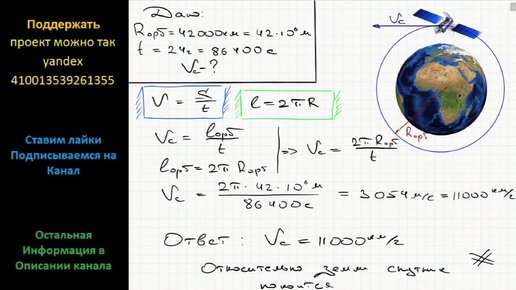 Поддержать
проект можно так
yandex
410013539261355
Ставим лайки
Подписываемся на
Канал
Остальная
Информация в
Описании канала
Дано:
Rорб = 42000км = 42·10⁶м
t = 24ч = 86400с
Vc - ?
V = S/t
l = 2πR
Vc = lорб/t
lорб = 2πRорб
=> Vc = 2πRорб/t
Vc = 2π·42·10⁶м/86400с = 3054м/с = 11000км/ч
Ответ: Vc = 11000км/ч
Относительно земли спутник
покоится
Vc
Rорб